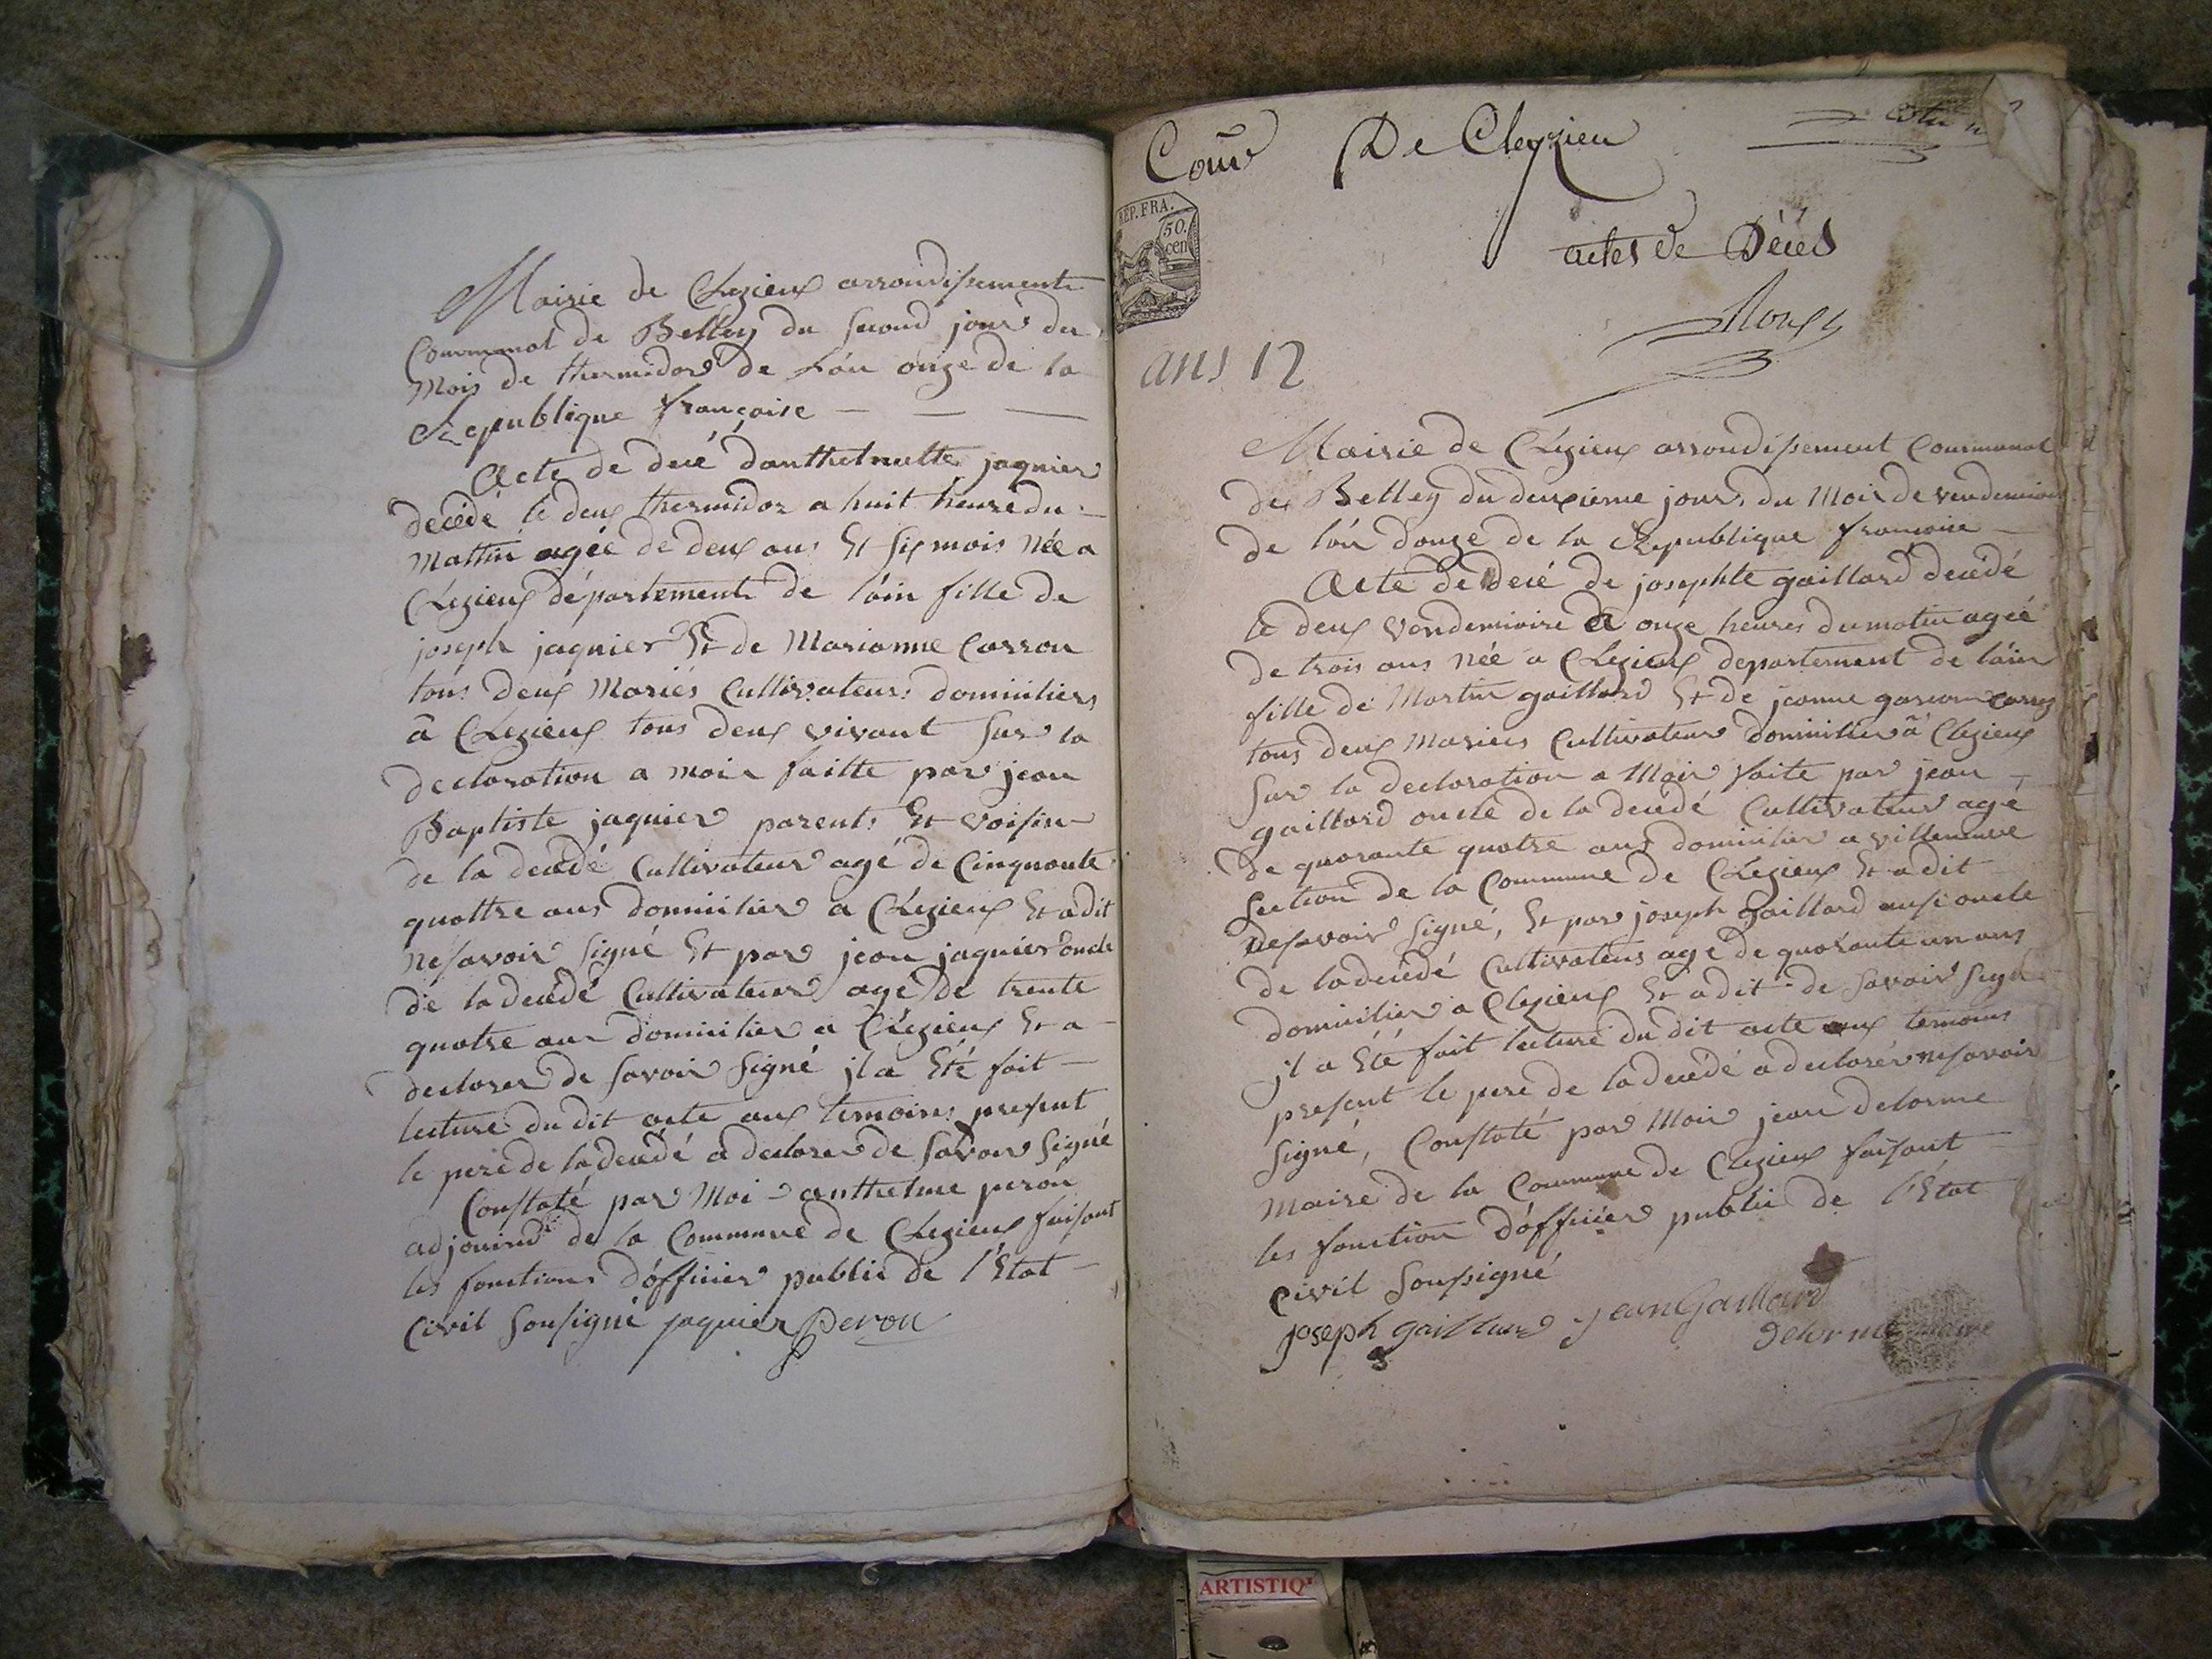 Mairie de Clezieux arrondissement
Communal de Belley du second jour du
Mois de thermidor de l'an onze de la
Republique françoise
Acte de decé d'anthelmette jaquier
decédé le deux thermidor a huit heure du
mattin agée de deux ans Et six mois Née a
Clezieux département de l'ain fille de
joseph jaquier Et de Marianne Carron
tous deux Mariés Cultivateurs domiciliers
à Clezieux tous deux vivant sur la
declaration a moi faitte par jean
Baptiste jaquier parent Et voisin
de la decédé Cultivateur agé de Cinquante
quattre ans domicilier a Clezieux Et a dit
ne savoir signé Et par jean jaquier oncle
de la decédé Cultivateur agé de trente
quatre ans domicilier a Clezieux Et a
declarer de savoir signé il a Eté fait
lecture du dit acte aux temoins present
le pere de la decédé a declarer de savoir signé
Constaté par Moi anthelme peron
adjoind de la Commune de Clezieux faisant
les fonctions d'officier public de l'Etat
Civil sousigné jaquier Peron
Coũe De Cleyzieu
REP. FRA.
50.
cen
actes de Décès
ans 12
Mairie de Clezieux arrondissement Communal
de Belley du deuxieme jour du Mois de vendemiaire
de l'an douze de la Republique françoise
Acte de decé de josephte gaillard decédé
le deux vendemiaire à onze heures du matin agée
de trois ans née a Clezieux departement de l'ain
fille de Martin gaillard Et de jeanne
tous deux Mariées Cultivateur domicilier à Clezieux
sur la declaration a Moi faite par jean
gaillard oncle de la decédé Cultivateur agé
de quarante quatre ans domicilier a villeneuve
section de la Commune de Clezieux Et a dit
de savoir signé, Et par joseph gaillard ausi oncle
de la decédé Cultivateur agé de quarante un ans
domicilier a Clezieux Et a dit de savoir signé
il a Eté fait lecture du dit acte aux temoins
present le pere de la decédé a declarer ne savoir
signé, Constaté par Moi jean delorme
maire de la Commune de Clezieux faisant
les fonction d'officier public de l'Etat
Civil sousigné
joseph gaillard jean Gaillard
delorme maire
ARTISTIQ